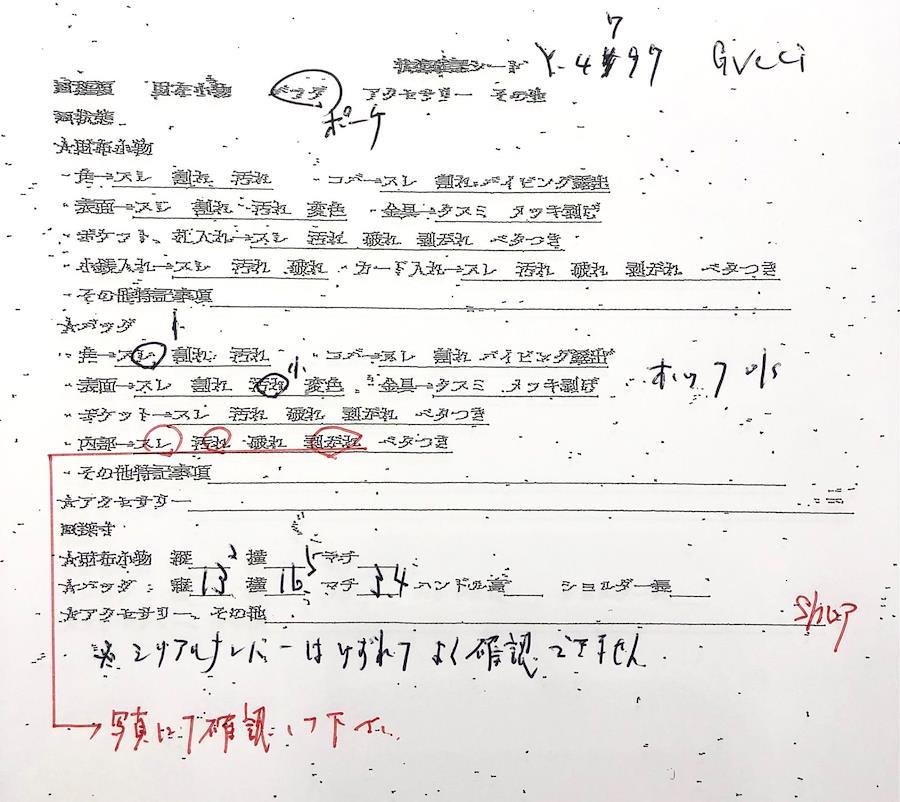 状態確認シート Y-4797 Gucci
財布小物 バッグ アクセサリー その他
ポーチ
状態
☆財布小物
・角→スレ 割れ 汚れ ・コバ→スレ 割れ パイピング露出
・表面→スレ 割れ 汚れ 変色 ・金具→クスミ メッキ剥げ
・ポケット、札入れ→スレ 汚れ 破れ 剥がれ ベタつき
・小銭入れ→スレ 汚れ 破れ ・カード入れ→スレ 汚れ 破れ 剥がれ ベタつき
・その他特記事項
☆バッグ 小
・角→スレ 割れ 汚れ ・コバ→スレ 割れ パイピング露出
・表面→スレ 割れ 汚れ 小 変色 ・金具→クスミ メッキ剥げ ホック
・ポケット→スレ 汚れ 破れ 剥がれ ベタつき
・内部→スレ 汚れ 破れ 剥がれ ベタつき
・その他特記事項
☆アクセサリー
採寸
☆財布小物 縦 横 マチ
☆バッグ: 縦 13 横 16 マチ 3.4 ハンドル高 ショルダー長
☆アクセサリー、その他
※シリアルナンバーはけずれてよく確認できません
→写真にて確認して下さい